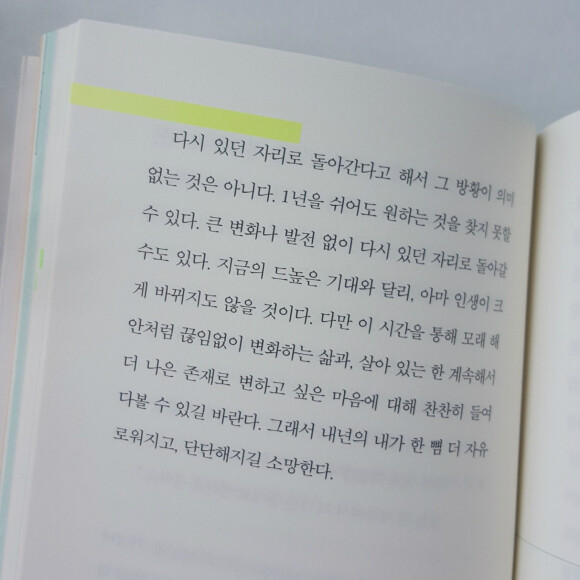 다시 있던 자리로 돌아간다고 해서 그 방황이 의미
없는 것은 아니다. 1년을 쉬어도 원하는 것을 찾지 못할
수 있다. 큰 변화나 발전 없이 다시 있던 자리로 돌아갈
수도 있다. 지금의 드높은 기대와 달리, 아마 인생이 크
게 바뀌지도 않을 것이다. 다만 이 시간을 통해 모래 해
안처럼 끊임없이 변화하는 삶과, 살아 있는 한 계속해서
더 나은 존재로 변하고 싶은 마음에 대해 찬찬히 들여
다볼 수 있길 바란다. 그래서 내년의 내가 한 뼘 더 자유
로워지고, 단단해지길 소망한다.